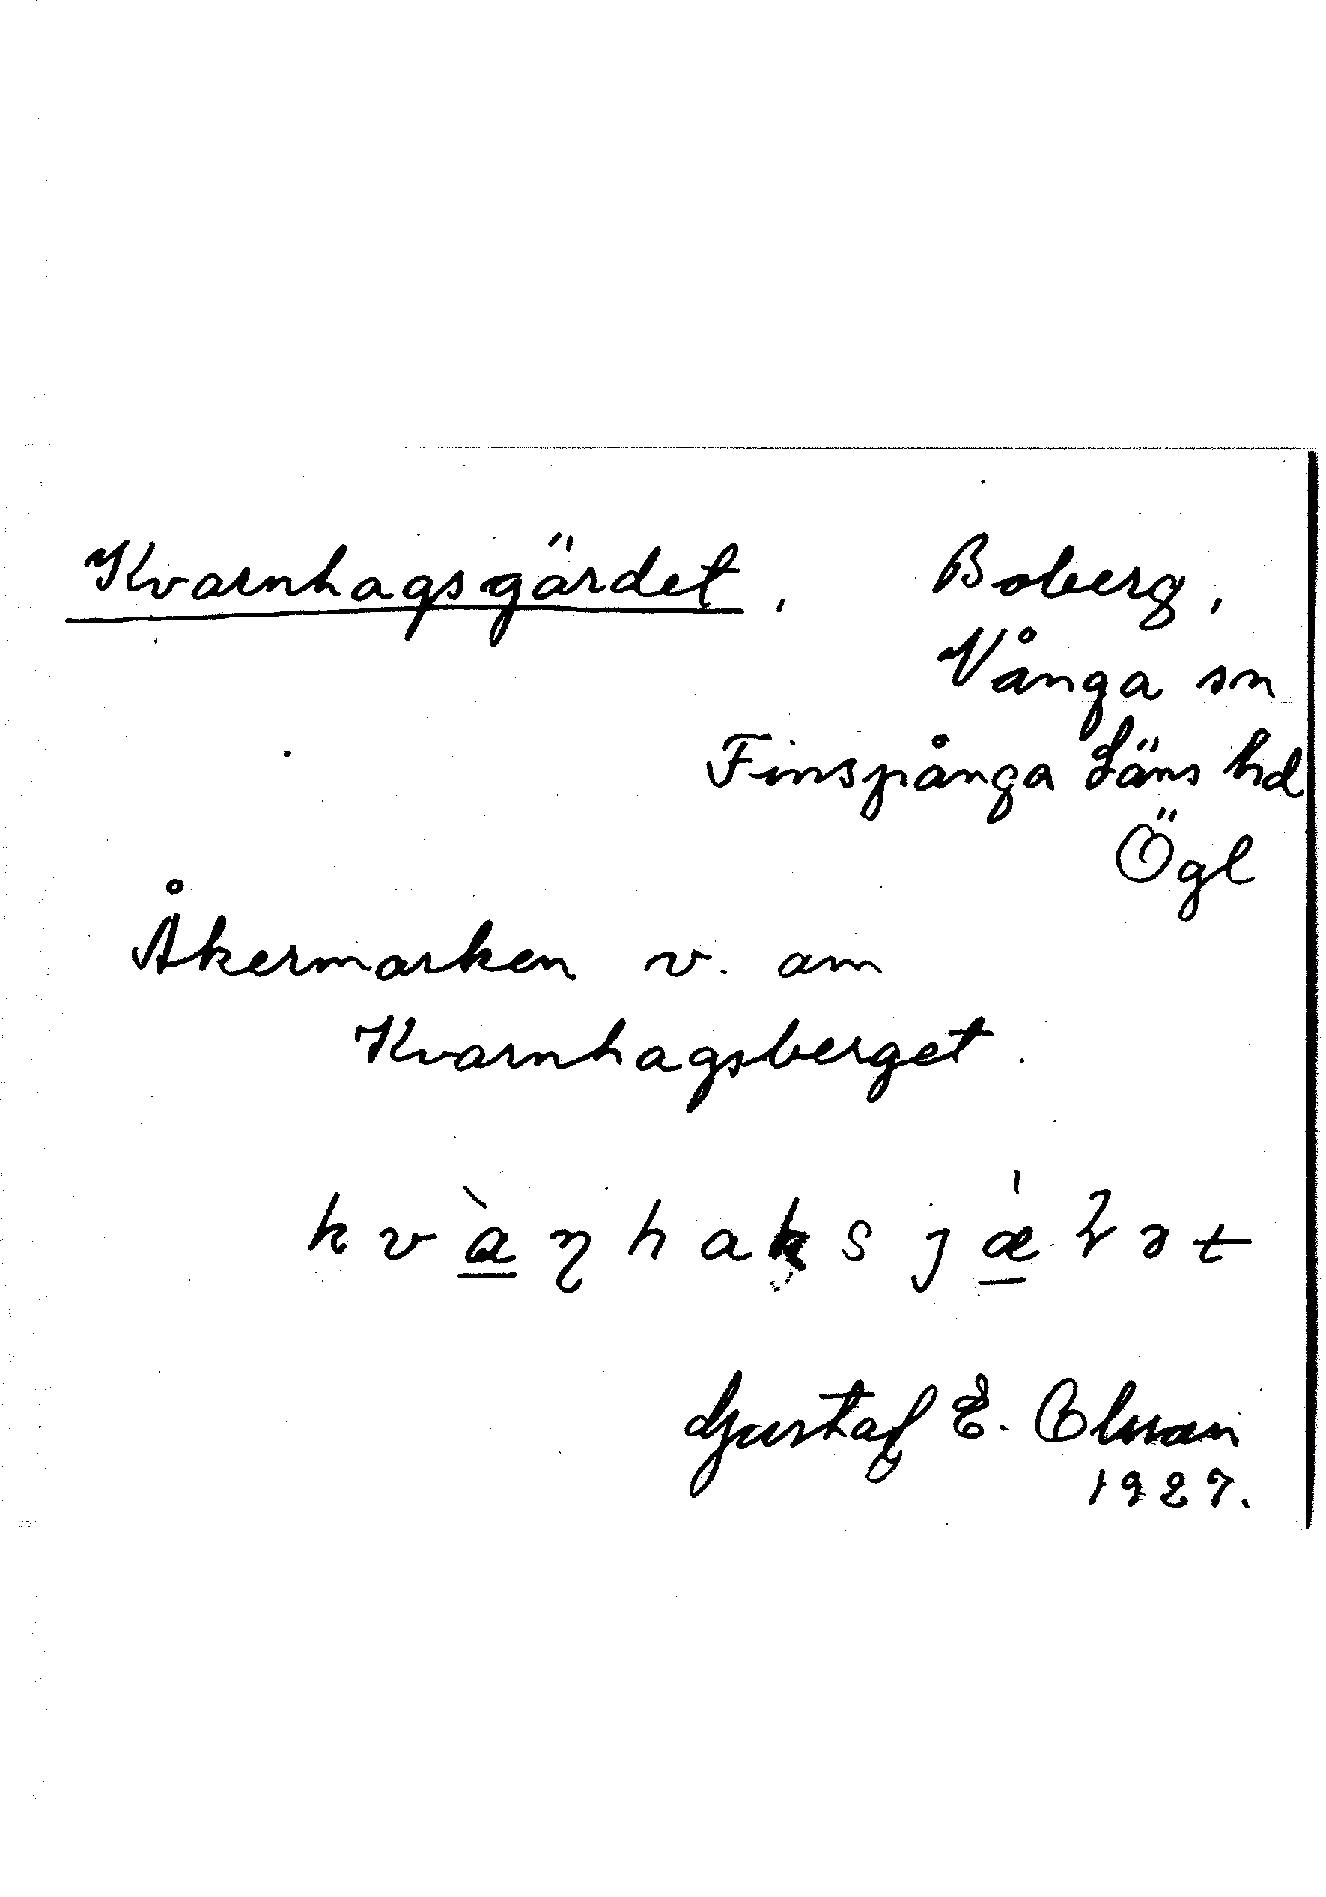 Kvarnhagsgärdet, Boberg,
Vånga sn
Finspånga Läns hd
Ögl
Åkermarken v. om
Kvarnhagsberget.
Gustaf E. Olsson
1927.